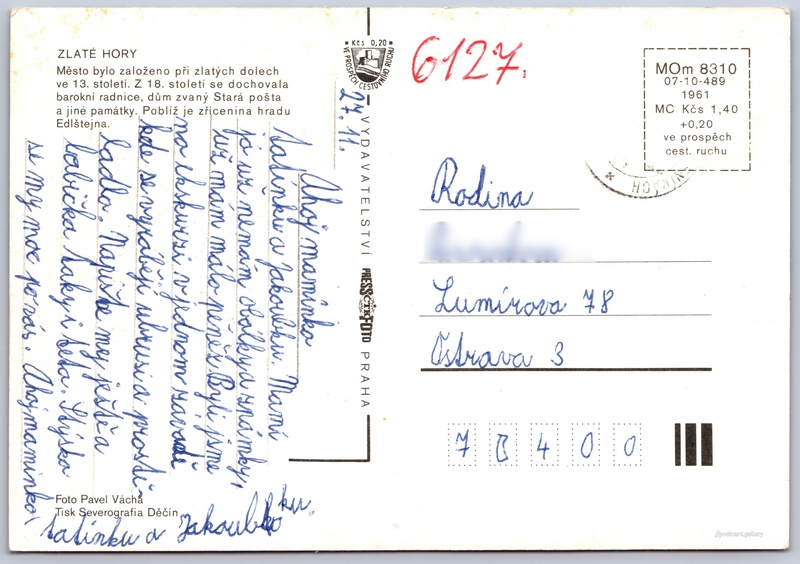 ZLATÉ HORY
Město bylo založeno při zlatých dolech
ve 13. století. Z 18. století se dochovala
barokní radnice, dům zvaný Stará pošta
a jiné památky. Poblíž je zřícenina hradu
Edlštejna.
Kčs 0,20
VE PROSPĚCH CESTOVNÍHO RUCHU
27. 11.
Ahoj maminko
tatínku a Jakoubku. Mami
já už nemám obálky a známky,
už mám málo peněz. Byli jsme
na exkurzi v jednom závodě
kde se vyráběji ubrusi a prostě-
radla. Napište mej ještě a
babička taky i teta. Stýska
se my moc po vás. Ahoj maminko,
tatínku a Jakoubku.
Foto Pavel Vácha
Tisk Severografia Děčín
VYDAVATELSTVÍ PRESSFOTO PRAHA
ČTK
6127.
MOm 8310
07-10-489
1961
MC Kčs 1,40
+0,20
ve prospěch
cest. ruchu
Rodina
Lumírova 78
Ostrava 3
7 0 4 0 0
postcart.gallery